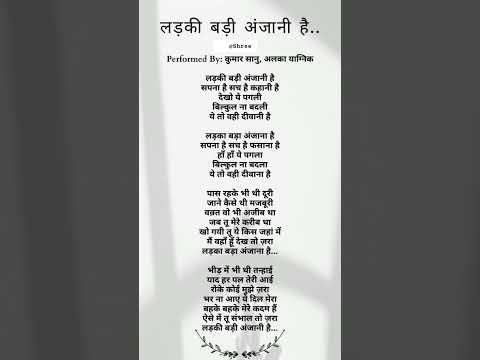 लड़की बड़ी अंजानी है..
@Shree
Performed By: कुमार सानु, अलका याग्निक
लड़की बड़ी अंजानी है
सपना है सच है कहानी है
देखो ये पगली
बिल्कुल ना बदली
ये तो वही दीवानी है
लड़का बड़ा अंजाना है
सपना है सच है फसाना है
हाँ हाँ ये पगला
बिल्कुल ना बदला
ये तो वही दीवाना है
पास रहके भी थी दूरी
जाने कैसे थी मजबूरी
वक़्त वो भी अजीब था
जब तू मेरे करीब था
खो गयी तू ये किस जहां में
मैं वहाँ हूँ देख तो ज़रा
लड़का बड़ा अंजाना है...
भीड़ में भी थी तन्हाई
याद हर पल तेरी आई
रोके कोई मुझे ज़रा
भर ना आए ये दिल मेरा
बहके बहके मेरे कदम हैं
ऐसे में तू संभाल तो ज़रा
लड़की बड़ी अंजानी है...